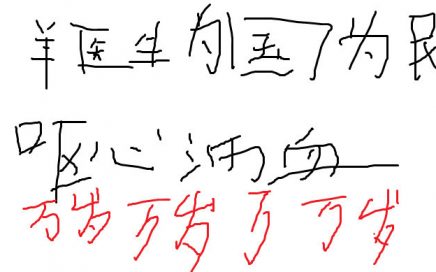 羊医生为国了为民
呕心沥血
万岁万岁了万岁